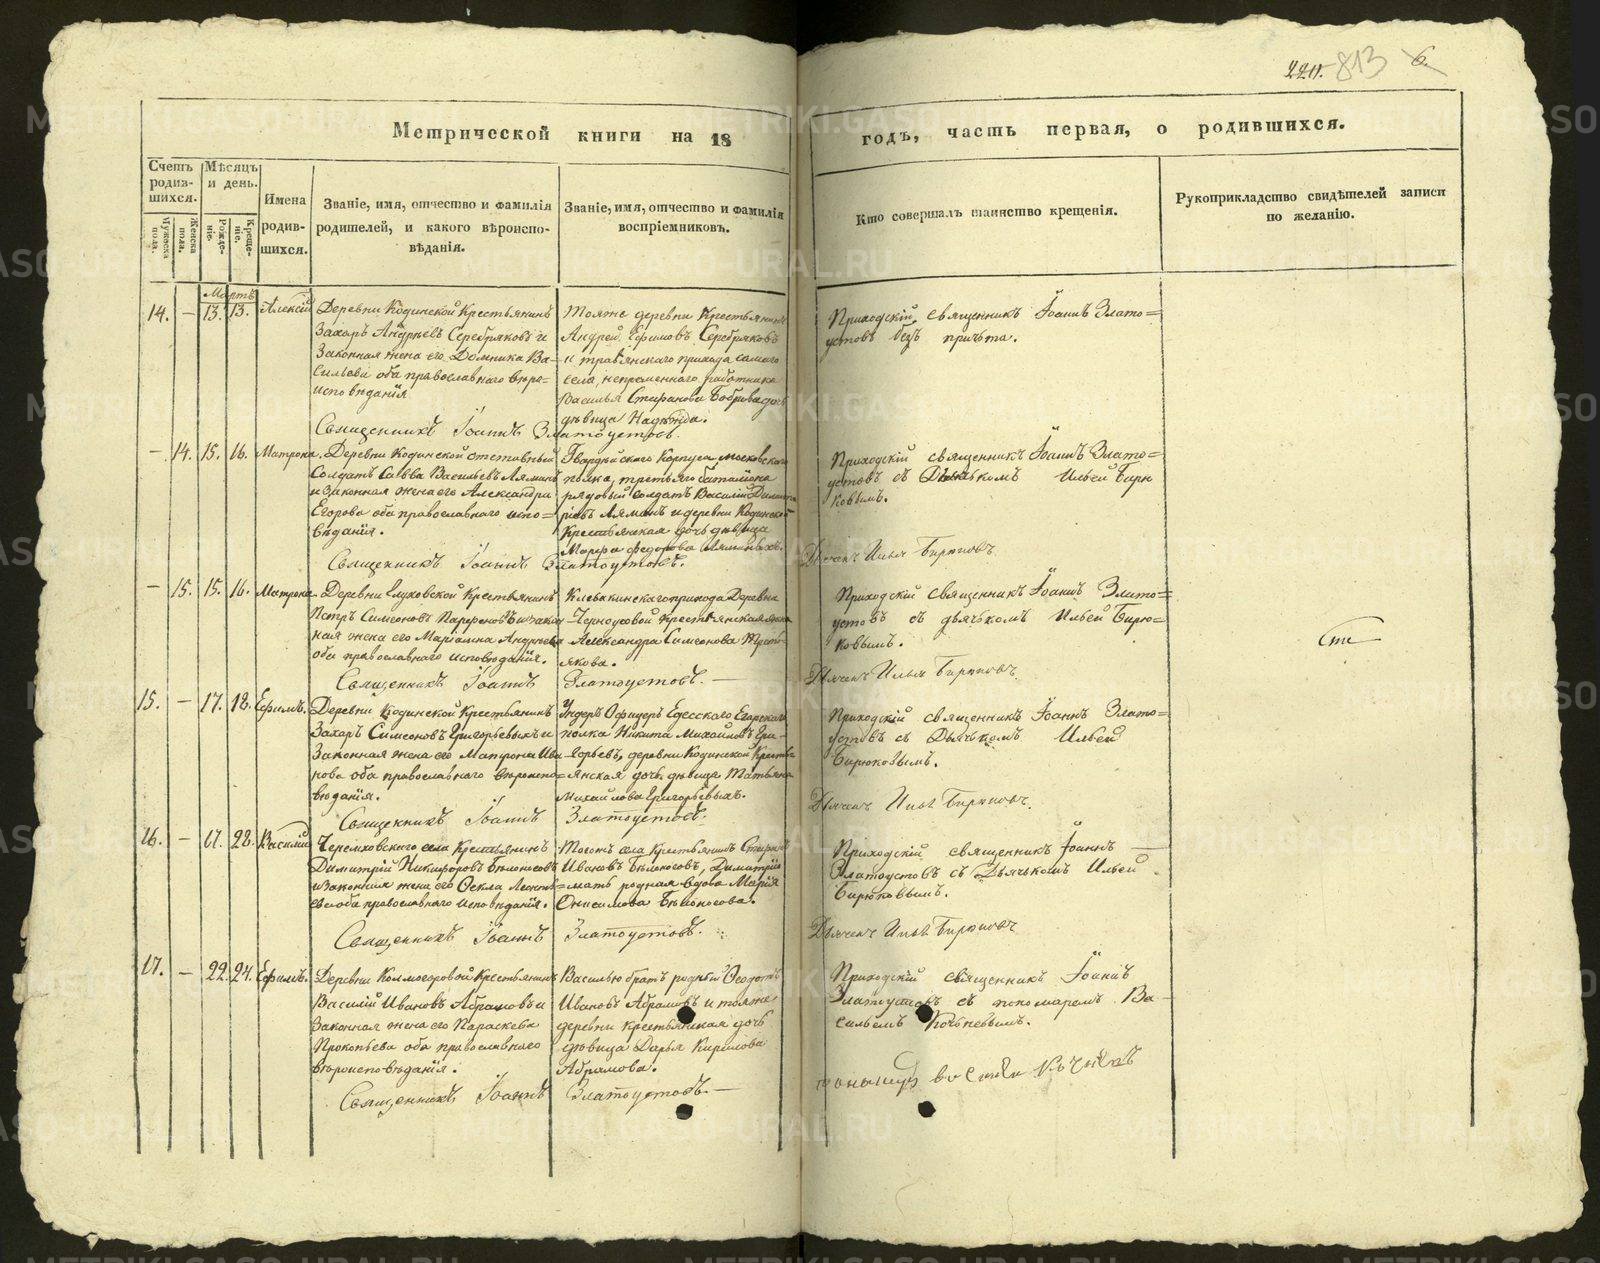 220. 813 6.
Метрической книги на 18 годъ, часть первая, о родившихся.
Счетъ родив-шихся.
Мужеска пола.
Женска пола.
Мѣсяцъ и день.
Рожде-ніе.
Креще-ніе.
Имена родив-шихся.
Званіе, имя, отчество и фамилія
родителей, и какого вѣроиспо-
вѣданія.
Званіе, имя, отчество и фамилія
воспріемниковъ.
Кто совершалъ таинство крещенія.
Рукоприкладство свидѣтелей записи
по желанію.
Мартъ
14. – 13. 13. Алексій
Деревни Кодинской Крестьянинъ
Захаръ Андреевъ Серебряковъ и
Законная жена его Домника Ва-
сильева оба православнаго вѣро-
исповѣданія
Тояже деревни Крестьянинъ
Андрей Ефимовъ Серебряковъ
и травянскаго прихода самаго
села непременнаго работника
Василья Стефанова дочь
дѣвица Надежда.
Приходскій священникъ Іоаннъ Злато=
устовъ безъ причта.
Священникъ Іоаннъ Златоустовъ.
– 14. 15. 16. Матрона.
Деревни Кодинской отставный
Солдатъ Савва Васильевъ Ляминъ
и Законная жена его Александра
Егорова оба православнаго испо=
вѣданія.
Гвардейскаго Корпуса московскаго
полка, третьяго баталіона
рядовый солдатъ Василій Димит
ріевъ Ляминъ и деревни Кодинской
Крестьянская дочь дѣвица
Марфа Федорова Ляминыхъ.
Приходскій священникъ Іоаннъ Злато=
устовъ съ Дьячькомъ Ильей Бирю
ковымъ.
Священникъ Іоаннъ Златоустовъ.
Дьячекъ Илья Бирюковъ
– 15. 15. 16. Матрона
Деревни Глуховской Крестьянинъ
Петръ Симеоновъ и закон
ная жена его Маріамна Андреева
оба православнаго исповѣданія.
Клевакинскаго прихода Деревни
Черноусовой Крестьянская жена
Александра Симеонова Треть-
якова.
Приходскій священникъ Іоаннъ Злато=
устовъ съ дьячькомъ Ильей Бирю=
ковымъ.
Священникъ Іоаннъ Златоустовъ.
Дьячекъ Илья Бирюковъ.
15. – 17. 18. Ефимъ.
Деревни Кодинской Крестьянинъ
Захаръ Симеоновъ Григорьевыхъ и
Законная жена его Матрона Ива
нова оба православнаго вѣроиспо=
вѣданія.
Ундеръ Офицеръ Егерскаго
полка Никита Михайловъ Гри-
горьевъ, деревни Кодинской Кресть
янская дочь дѣвица Татьяна
Михайлова Григорьевыхъ.
Приходскій священникъ Іоаннъ Злато=
устовъ съ Дьячькомъ Ильей
Бирюковымъ.
Священникъ Іоаннъ Златоустовъ.
Дьячекъ Илья Бирюковъ.
16. – 17. 22. Василій
Черемховскаго села Крестьянинъ
Димитрій Никифоровъ Бѣлоносовъ
и Законная жена его Фекла Леонть
ева оба православнаго исповѣданія.
Тогожъ села Крестьянинъ
Ивановъ Бѣлоносовъ, Димитрія
мать родная вдова Марія
Онисимова Бѣлоносова.
Приходскій священникъ Іоаннъ
Златоустовъ съ Дьячькомъ Ильей
Бирюковымъ.
Священникъ Іоаннъ Златоустовъ.
Дьячекъ Илья Бирюковъ
17. – 22. 24. Ефимъ.
Деревни Колмогоровой Крестьянинъ
Василій Ивановъ Абрамовъ и
Законная жена его Параскева
Прокопьева оба православнаго
вѣроисповѣданія.
Василью братъ родный Феодотъ
Ивановъ Абрамовъ и тояже
деревни крестьянская дочь
дѣвица Дарья Кирилова
Абрамова.
Приходскій священникъ Іоаннъ
Златоустовъ съ пономаремъ Ва-
сильемъ
Священникъ Іоаннъ Златоустовъ
METRIKI.GASO-URAL.RU